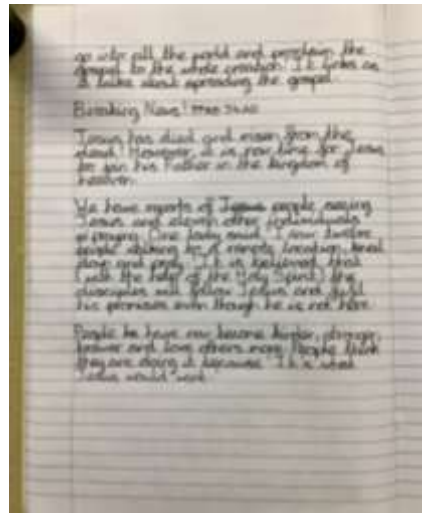 go into all the world and proclaim the
gospel to the whole creation. It links as
it talks about spreading the gospel.
Breaking News!
Jesus has died and risen from the
dead! However, it is now time for Jesus
to join his Father in the kingdom of
heaven.
We have reports of Jesus people seeing
Jesus and eleven other individuals
praying. One lady said, "I saw twelve
people walking to a remote location, kneel
down and pray." It is believed that
(with the help of the Holy Spirit) the
disciples will follow Jesus and fulfil
his promises even though he is not here.
People have now become kinder, stronger,
braver and love others more. People think
they are doing it because it is what
Jesus would want.